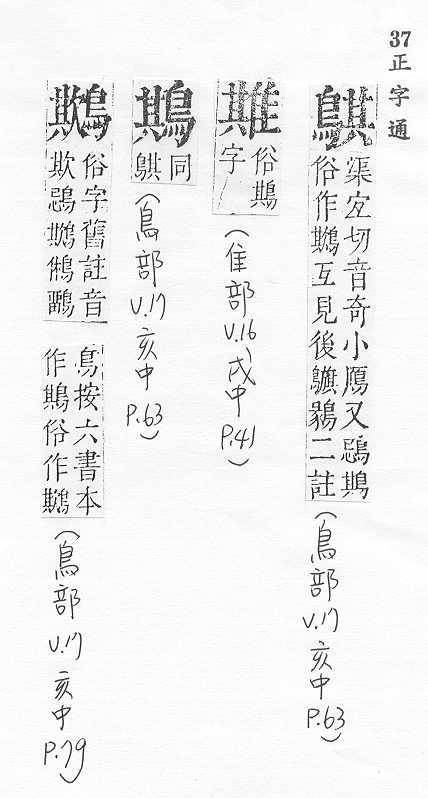 37 正字通
渠宜切音奇小鴈又鵋鶀
俗作互見後二註
(鳥部 v.17 亥中 P.63)
俗鶀
字
(隹部 v.16 戌中 P.41)
鶀
同
(鳥部 v.17 亥中 P.63)
俗字舊註音
欺鵋鵂鶹
鳥按六書本
作鶀俗作
(鳥部 v.17 亥中 P.79)